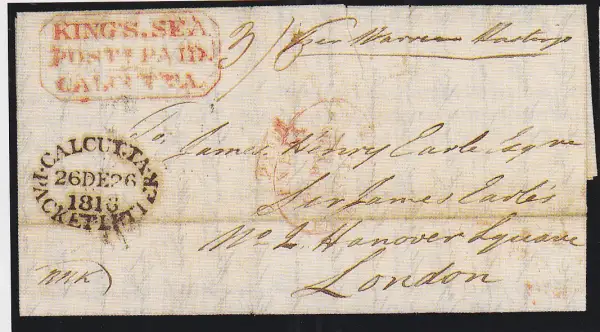 KING'S. SEA
POST PAID.
CALCUTTA.
3/
Per Warren Hastings
CALCUTTA
26 DE 26
1816
PACKET LETTER
To James Henry Earle Esqre
Sir James Earle's
No 2. Hanover Square
London